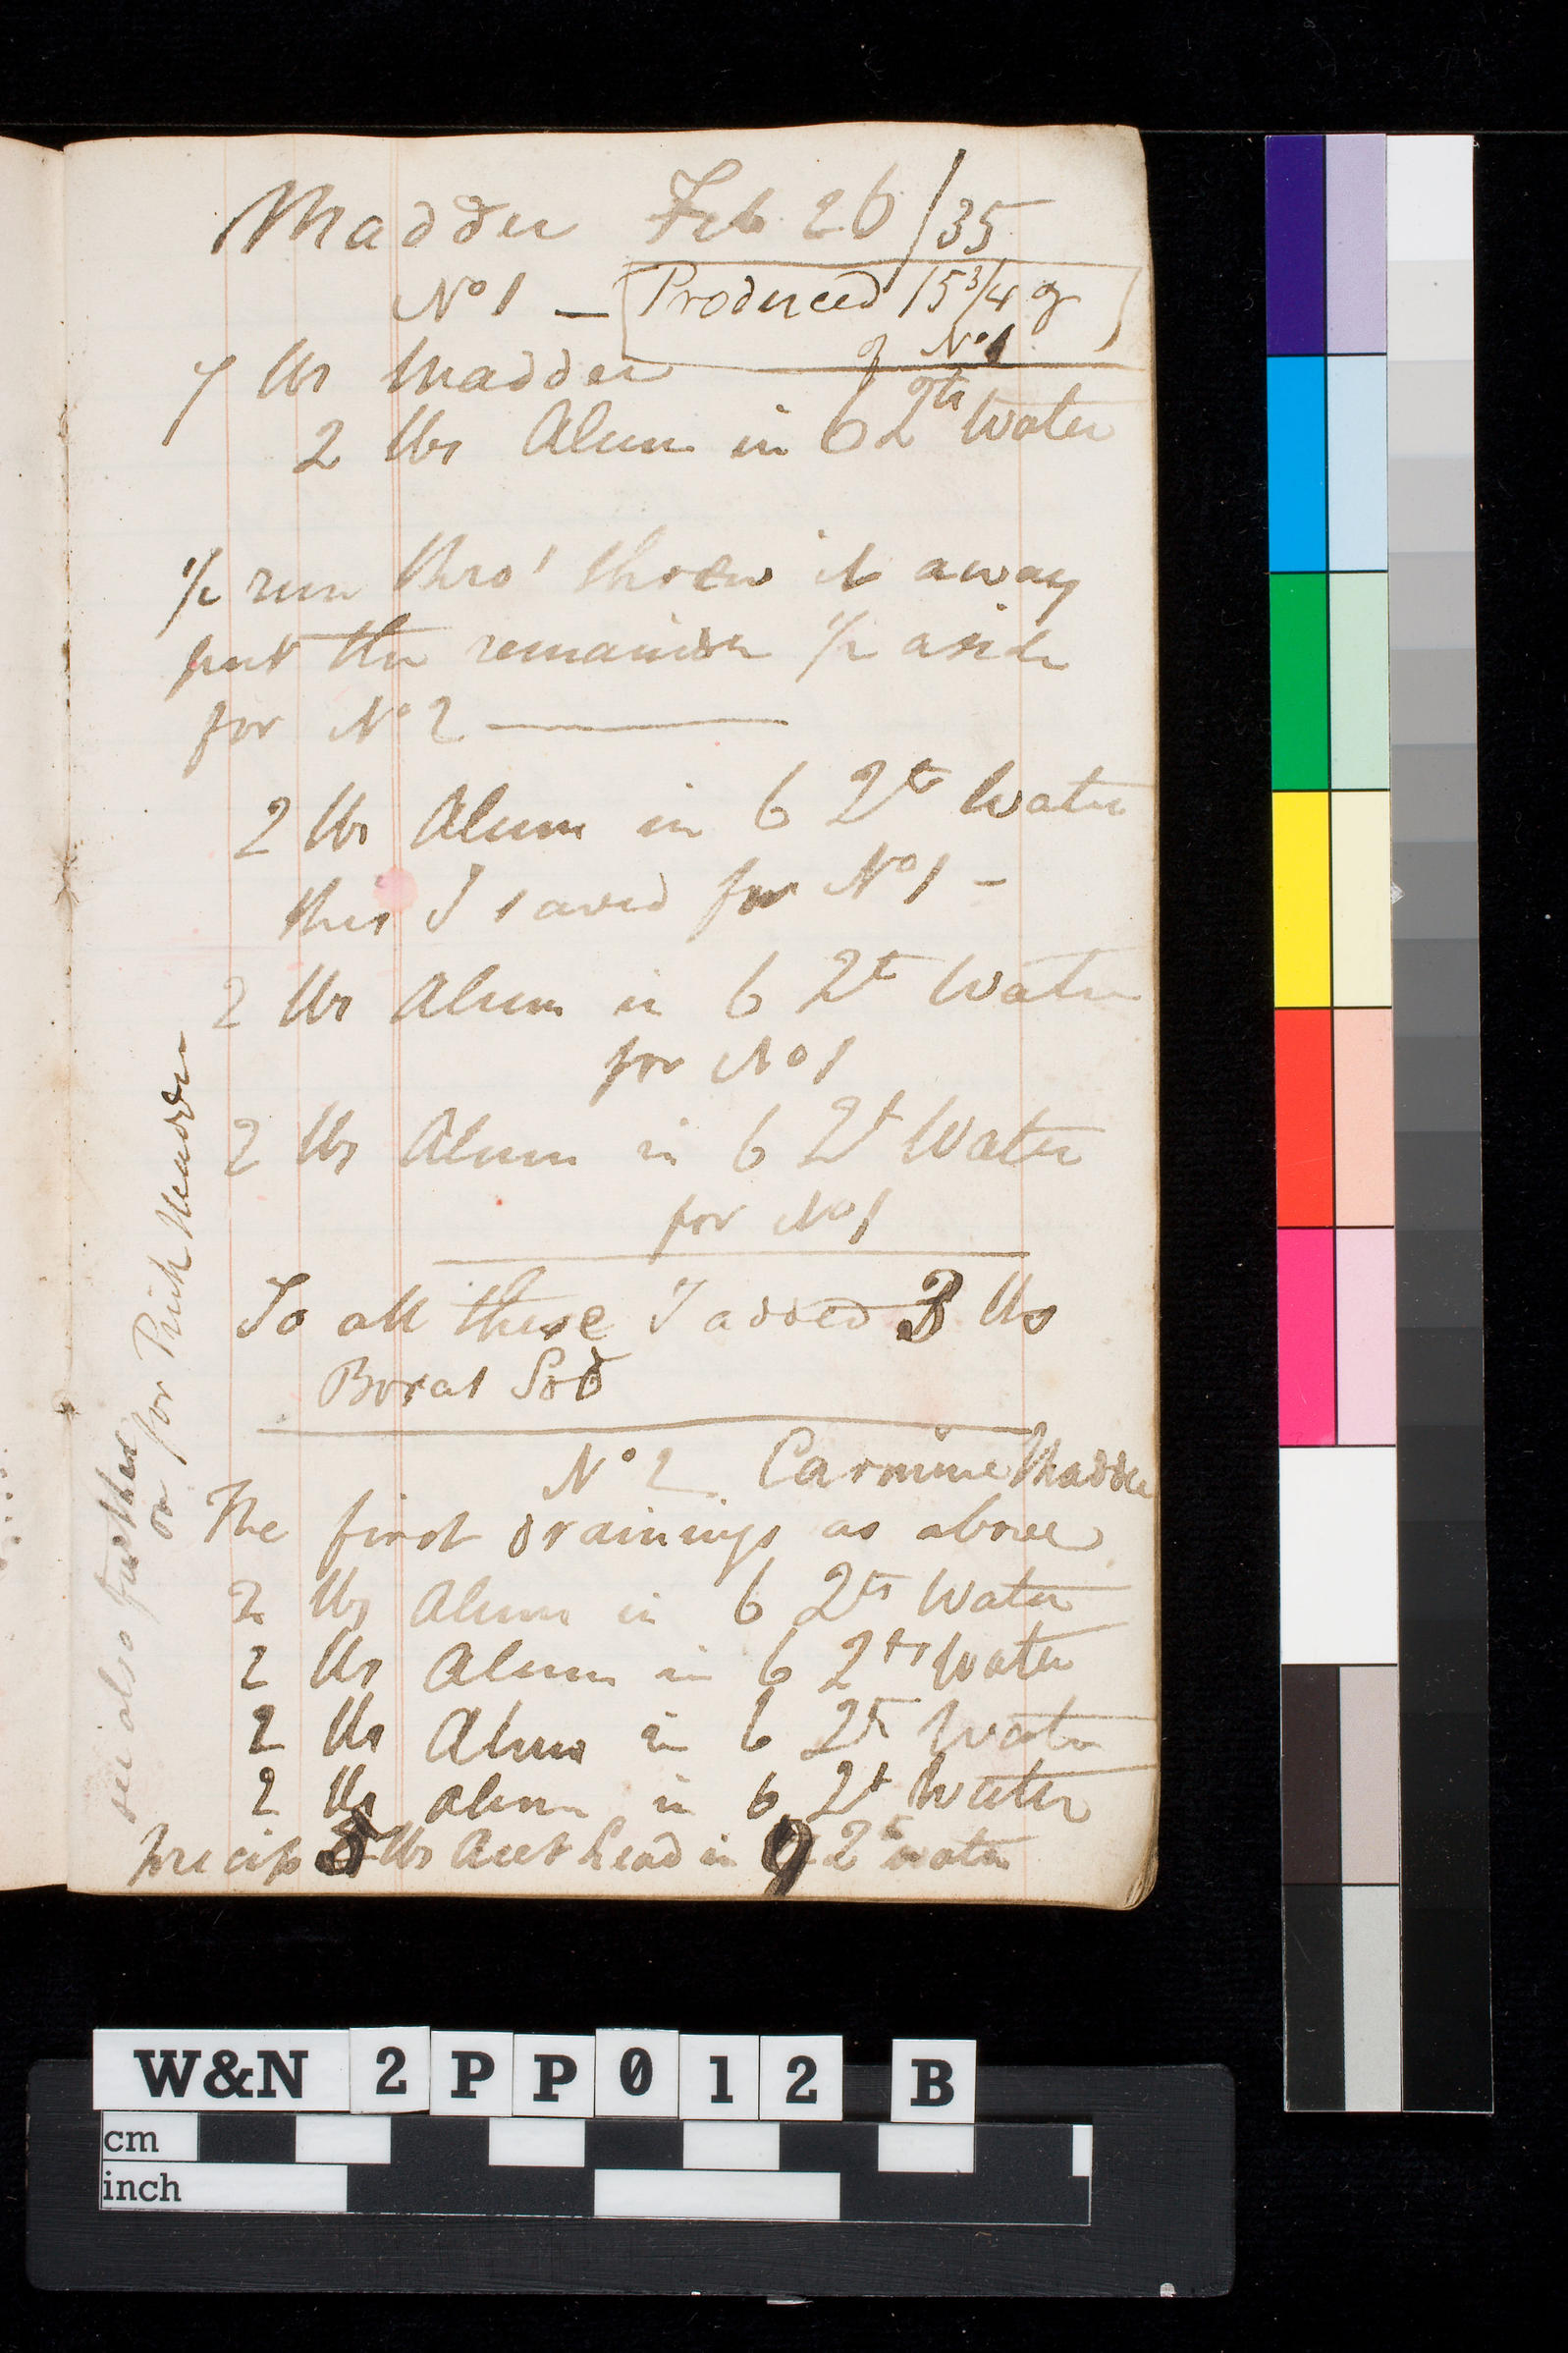 Madder Feb 26/35
No 1 — Produced 15 3/4 oz
of No 1
7 lbs Madder
2 lbs Alum in 6 2ts Water
1/2 run thro' threw it away
put the remainder 1/2 aside
for No 2 ———
2 lbs Alum in 6 2ts Water
this I saved for No 1 –
2 lbs Alum in 6 2t Water
for No 1
2 lbs Alum in 6 2t Water
for No 1
To all these I added 3 lbs
Boras Sod
No 2 Carmine Madder
The first drainings as above
2 lbs Alum in 6 2ts Water
2 lbs Alum in 6 2ts Water
2 lbs Alum in 6 2ts Water
2 lbs Alum in 6 2t Water
precip lbs Acet Lead in 9 2ts water
see also further
on for Pink Madder
W&N 2PP012 B
cm
inch